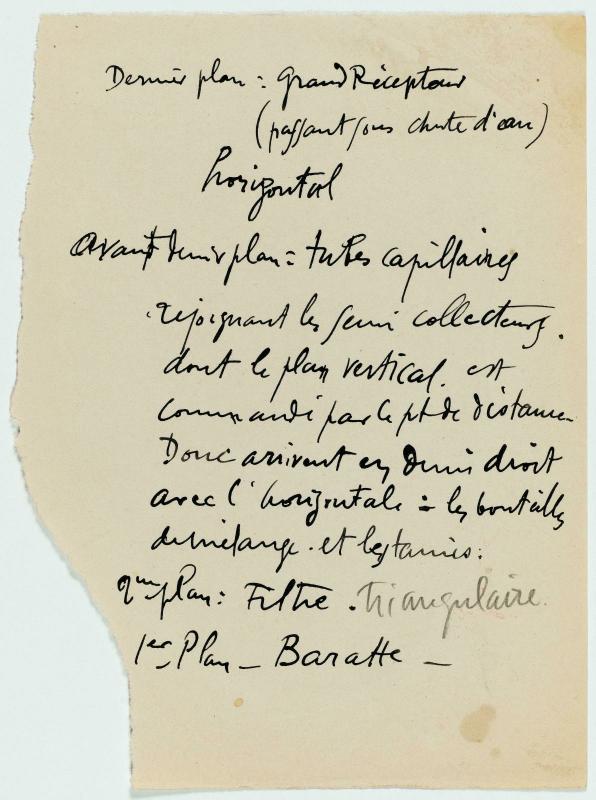 Dernier plan : Grand Récepteur
(passant sous chute d'eau)
horizontal
Avant dernier plan = tubes capillaires
rejoignant les semi collecteurs.
dont le plan vertical. est
commandé par le pt de distance
Donc arrivent en demi droit
avec l'horizontale = les bouteilles
de mélange. et les tamis.
2me plan : Filtre . triangulaire.
1er Plan – Baratte –